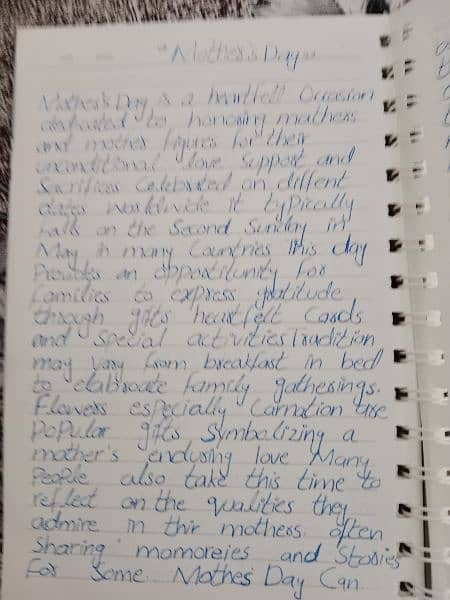 "Mother's Day"
Mother's Day is a heartfelt Occasion
dedicated to honoring mothers
and mother figures for their
unconditional love support and
Sacrifices Celebrated on diffent
dates worldwide it typically
falls on the Second Sunday in
May in many Countries This day
Provides an opportunity for
families to express gratitude
through gifts heartfelt Cards
and special activities Tradition
may vary from breakfast in bed
to elabroate family gatherings.
Flowers especially Carnation are
popular gifts Symbolizing a
mother's enduring love Many
People also take this time to
reflect on the qualities they
admire in thir mothers. often
Sharing momoreies and Stories
For Some Mother's Day Can